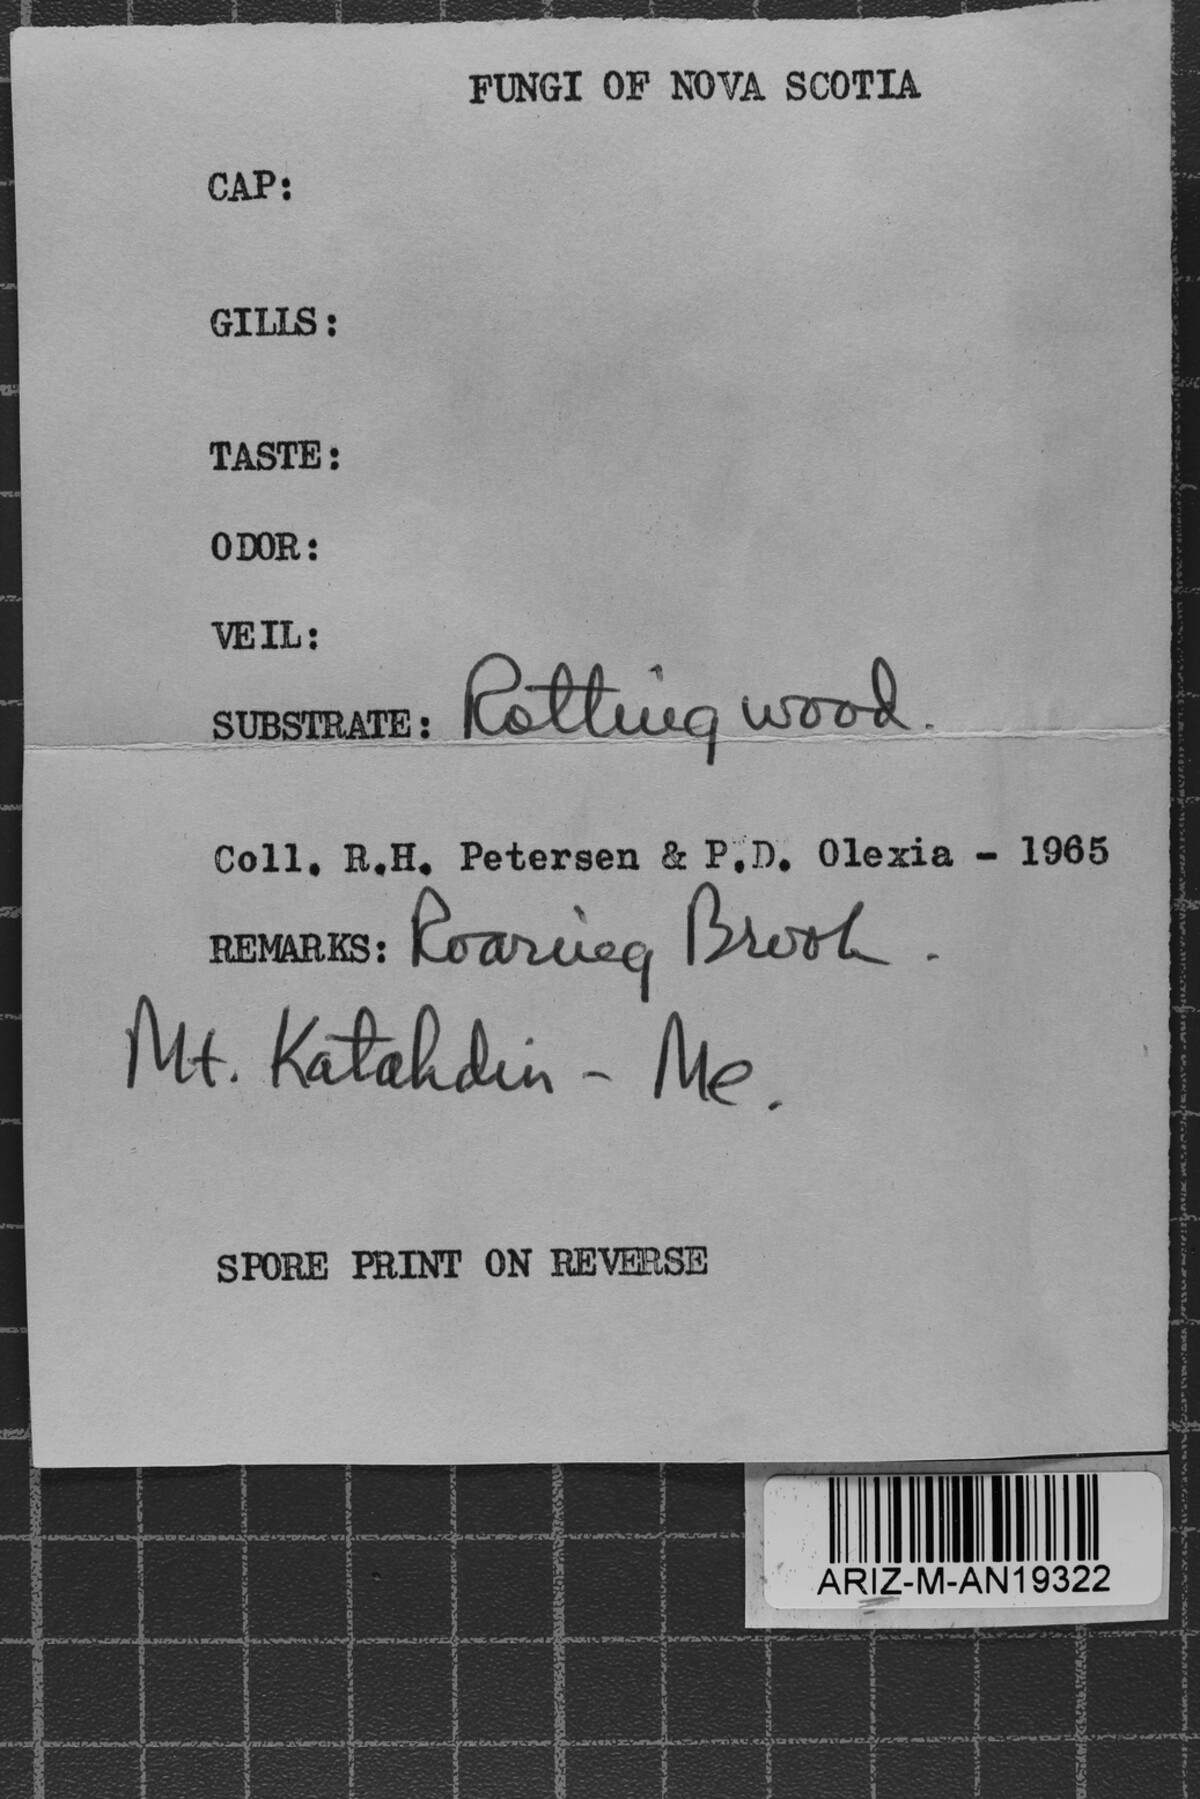 FUNGI OF NOVA SCOTIA
CAP:
GILLS:
TASTE:
ODOR:
VEIL:
SUBSTRATE: Rotting wood.
Coll. R.H. Petersen & P.D. Olexia - 1965
REMARKS: Roaring Brook.
Mt. Katahdin - Me.
SPORE PRINT ON REVERSE
ARIZ-M-AN19322